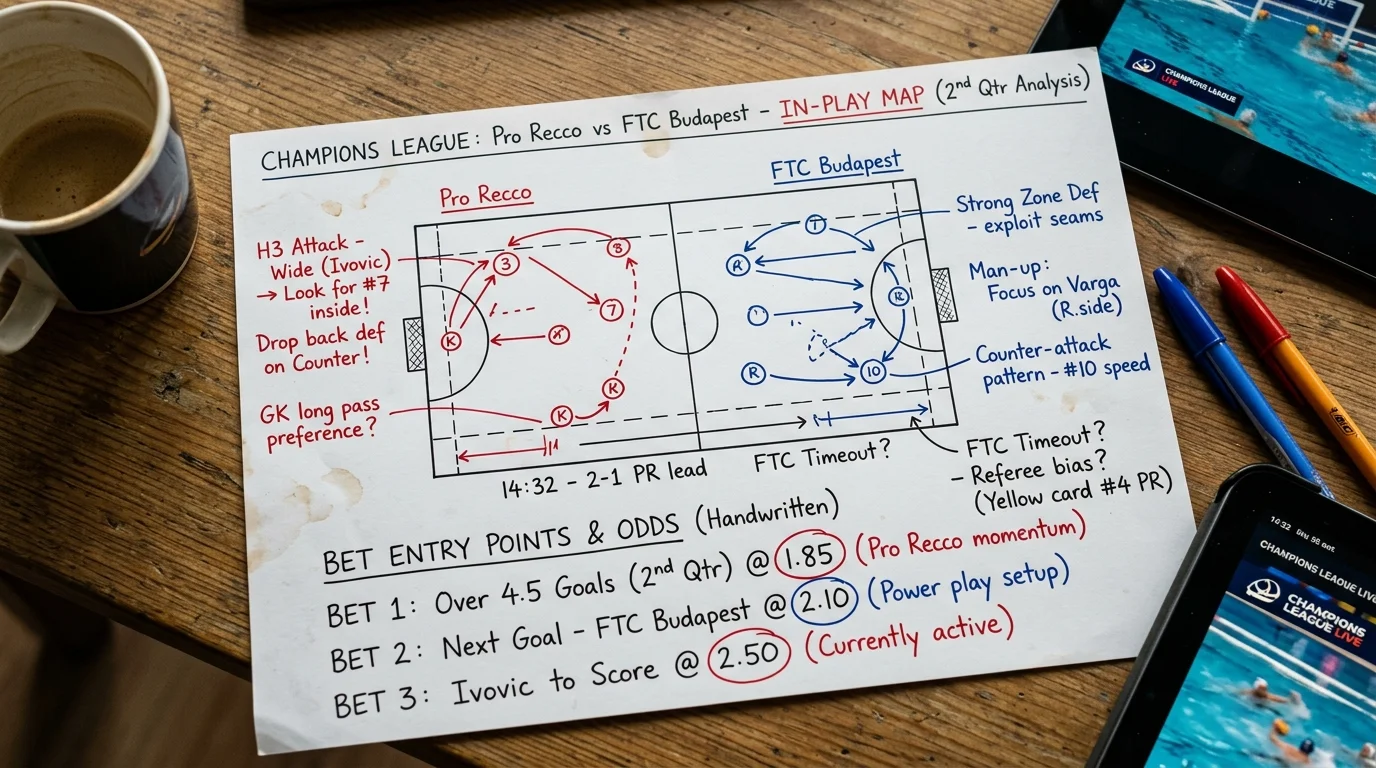 CHAMPIONS LEAGUE: Pro Recco vs FTC Budapest - IN-PLAY MAP (2nd Qtr Analysis)
Pro Recco
FTC Budapest
H3 Attack -
Wide (Ivovic)
→ Look for #7
inside!
Drop back def
on Counter!
GK long pass
preference?
3
8
7
K
K
K
T
R
10
Strong Zone Def
- exploit seams
Man-up:
Focus on Varga
(R.side)
Counter-attack
pattern - #10 speed
14:32 - 2-1 PR lead
FTC Timeout?
FTC Timeout?
- Referee bias?
(Yellow card #4 PR)
BET ENTRY POINTS & ODDS (Handwritten)
BET 1: Over 4.5 Goals (2nd Qtr) @ 1.85 (Pro Recco momentum)
BET 2: Next Goal - FTC Budapest @ 2.10 (Power play setup)
BET 3: Ivovic to Score @ 2.50 (Currently active)
CHAMPIONS LEAGUE
LIVE
CHAMPIONS LEAGUE LIVE
CHAMPIONS
LEAGUE LIVE